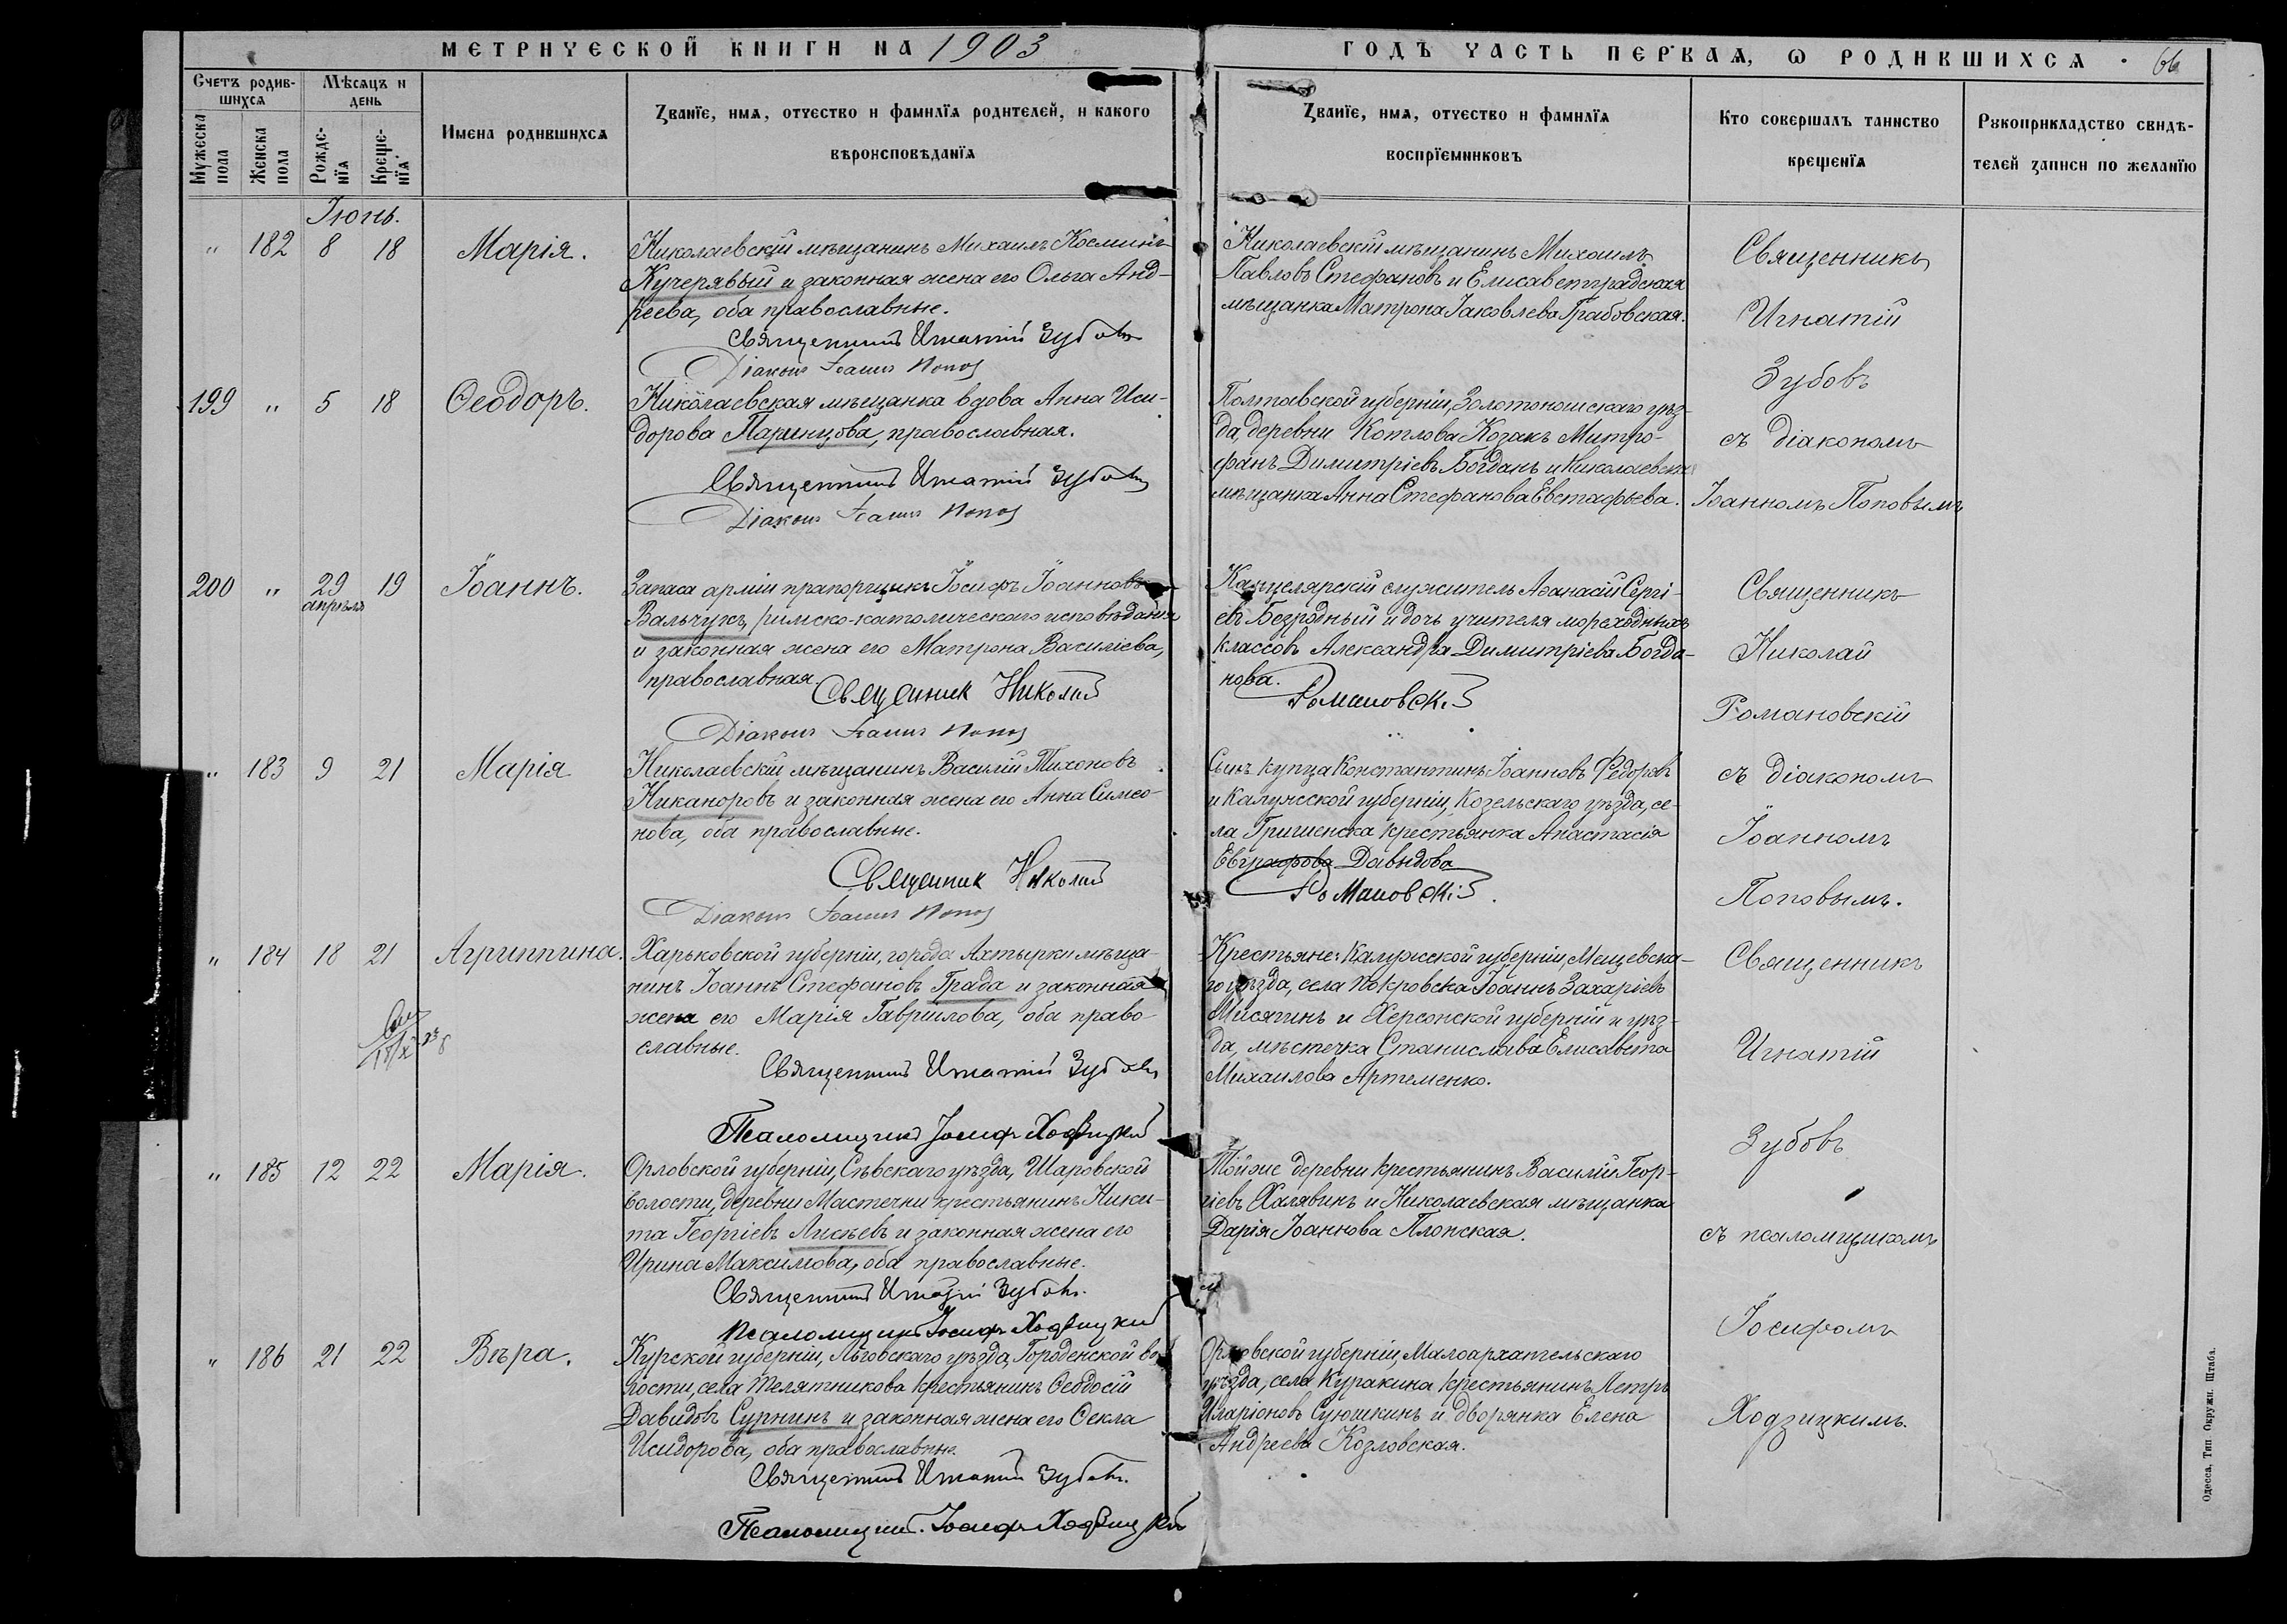 МЕТРИЧЕСКОЙ КНИГИ НА 1903
ГОДЪ ЧАСТЬ ПЕРВАЯ, Ѡ РОДИВШИХСЯ
66
Счетъ родив-
шихся
Мѣсяцъ и
день
Мужеска
пола
Женска
пола
Рожде-
нїя
Креще-
нїя
Имена родившихся
Званїе, имя, отчество и фамилїя родителей, и какого
вѣроисповѣданїя
Званїе, имя, отчество и фамилїя
воспрїемниковъ
Кто совершалъ таинство
крещенїя
Рукоприкладство свидѣ-
телей записи по желанїю
Іюнь.
" 182 8 18 Марія.
Николаевскій мѣщанинъ Михаилъ Косминъ
Кучерявый и законная жена его Ольга Анд-
реева, оба православные.
Священникъ Игнатій Зубовъ
Діаконъ Іоаннъ Поповъ
Николаевскій мѣщанинъ Михаилъ
Павловъ Стефановъ и Елисаветградская
мѣщанка Матрона Іаковлева Грабовская.
Священникъ
Игнатій
Зубовъ
съ діакономъ
Іоанномъ Поповымъ
199 " 5 18 Ѳеодоръ.
Николаевская мѣщанка вдова Анна Иси-
дорова Паринцова, православная.
Священникъ Игнатій Зубовъ
Діаконъ Іоаннъ Поповъ
Полтавской губерніи, Золотоношскаго уѣз-
да, деревни Котлова Козакъ Митро-
фанъ Димитріевъ Богданъ и Николаевская
мѣщанка Анна Стефанова Евстафьева.
200 " 29 19 Іоаннъ.
апрѣля
Запаса арміи прапорщикъ Іосифъ Іоанновъ
Вальчукъ, римско-католическаго исповѣданія
и законная жена его Матрона Василіева,
православная.
Священник Николай
Романовскій
Діаконъ Іоаннъ Поповъ
Канцелярскій служитель Аѳанасій Сергі-
евъ Безродный и дочь учителя мореходныхъ
классовъ Александра Димитріева Богда-
нова.
Священникъ
Николай
Романовскій
съ діакономъ
Іоанномъ
Поповымъ.
" 183 9 21 Марія
Николаевскій мѣщанинъ Василій Тихоновъ
Никаноровъ и законная жена его Анна Симео-
нова, оба православные.
Священник Николай
Романовскій
Діаконъ Іоаннъ Поповъ
Сынъ купца Константинъ Іоанновъ Федоровъ
и Калужской губерніи, Козельскаго уѣзда, се-
ла крестьянка Анастасія
Давыдова
" 184 18 21 Агриппина.
Харьковской губерніи, города Ахтырки мѣща-
нинъ Іоаннъ Стефановъ Града и законная
жена его Марія Гавриилова, оба право-
славные.
Священникъ Игнатій Зубовъ
Псаломщикъ Іосифъ Ходзицкій
Крестьяне: Калужской губерніи, Мещевска-
го уѣзда, села Покровска Іоаннъ Захаріевъ
Мисягинъ и Херсонской губерніи и уѣз-
да, мѣстечка Станислава Елисавета
Михаилова Артеменко.
Священникъ
Игнатій
Зубовъ
съ псаломщикомъ
Іосифомъ
Ходзицкимъ.
" 185 12 22 Марія.
Орловской губерніи, Сѣвскаго уѣзда, Шаровской
волости, деревни Мастечни крестьянинъ Ники-
та Георгіевъ Лисѣевъ и законная жена его
Ирина Максимова, оба православные.
Священникъ Игнатій Зубовъ.
Псаломщикъ Іосифъ Ходзицкій
Той же деревни крестьянинъ Василій Геор-
гіевъ Халявинъ и Николаевская мѣщанка
Дарія Іоаннова Плонская.
" 186 21 22 Вѣра.
Курской губерніи, Льговскаго уѣзда, Городенской во-
лости, села Телятникова крестьянинъ Ѳеодосій
Давидовъ Сурнинъ и законная жена его Ѳекла
Исидорова, оба православные.
Священникъ Игнатій Зубовъ.
Псаломщикъ. Іосифъ Ходзицкій
Орловской губерніи, Малоархангельскаго
уѣзда, села Куракина крестьянинъ Петръ
Иларіоновъ Суюшкинъ и дворянка Елена
Андреева Козловская.
Одесса, Тип. Окружн. Штаба.